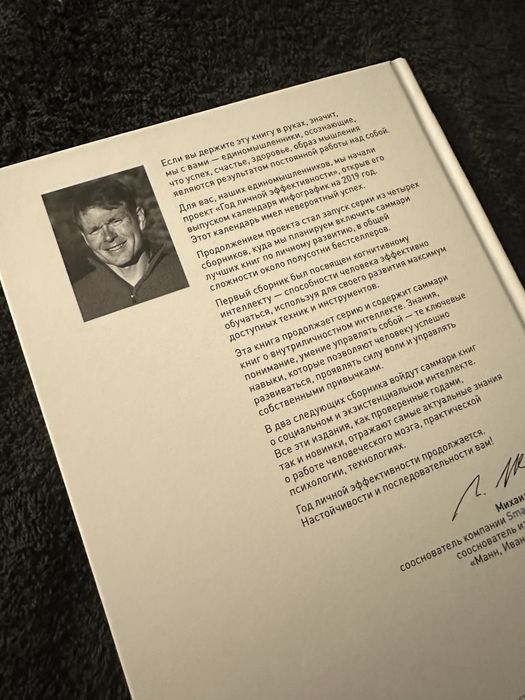 Если вы держите эту книгу в руках, значит,
мы с вами — единомышленники, осознающие,
что успех, счастье, здоровье, образ мышления
являются результатом постоянной работы над собой.
Для вас, наших единомышленников, мы начали
проект «Год личной эффективности», открыв его
выпуском календаря инфографик на 2019 год.
Этот календарь имел невероятный успех.
Продолжением проекта стал запуск серии из четырех
сборников, куда мы планируем включить саммари
лучших книг по личному развитию, в общей
сложности около полусотни бестселлеров.
Первый сборник был посвящен когнитивному
интеллекту — способности человека эффективно
обучаться, используя для своего развития максимум
доступных техник и инструментов.
Эта книга продолжает серию и содержит саммари
книг о внутриличностном интеллекте. Знания,
понимание, умение управлять собой — те ключевые
навыки, которые позволяют человеку успешно
развиваться, проявлять силу воли и управлять
собственными привычками.
В два следующих сборника войдут саммари книг
о социальном и экзистенциальном интеллекте.
Все эти издания, как проверенные годами,
так и новинки, отражают самые актуальные знания
о работе человеческого мозга, практической
психологии, технологиях.
Год личной эффективности продолжается.
Настойчивости и последовательности вам!
Миха
сооснователь компании Sma
сооснователь из
«Манн, Иван